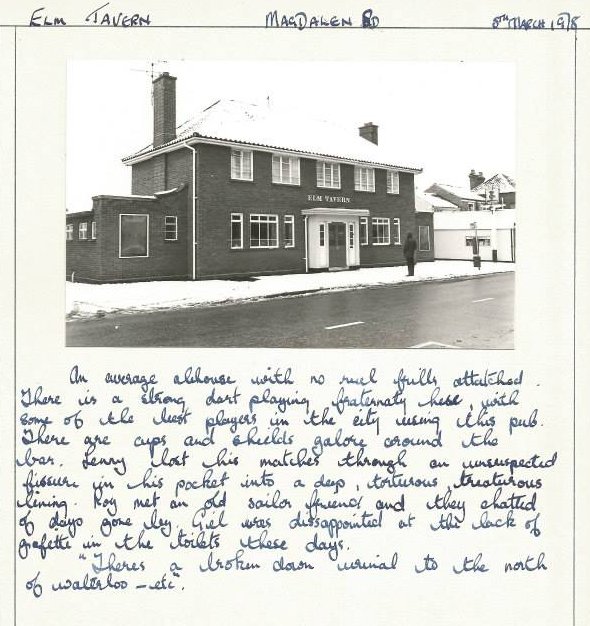 ELM TAVERN MAGDALEN RD 8TH MARCH 1978
ELM TAVERN
An average alehouse with no real frills attatched.
There is a strong dart playing fraternaty here, with
some of the best players in the city using this pub.
There are cups and shields galore around the
bar. Lenny lost his matches through an unsuspected
fissure in his pocket into a deep, torturous, treaturous
lining. Roy met an old sailor friend and they chatted
of days gone by. Giel was dissapointed at the lack of
grafette in the toilets these days.
"Theres a broken down urinal to the north
of waterloo - etc".